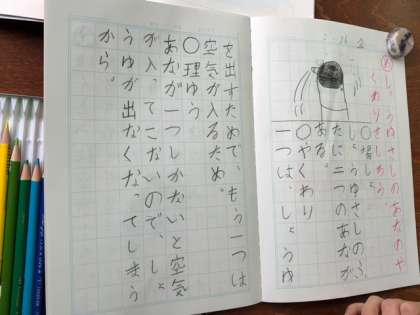 しょうゆさしのあなのや
○場しょ
しょうゆさしのふ
たに二つのあなが
ある。
○やくわり
一つは、しょうゆ
を出すためで、もう一つは
空気が入るため。
○理ゆう
あなが一つしかないと空気
が入ってこないので、しょ
うゆが出なくなってしまう
から。